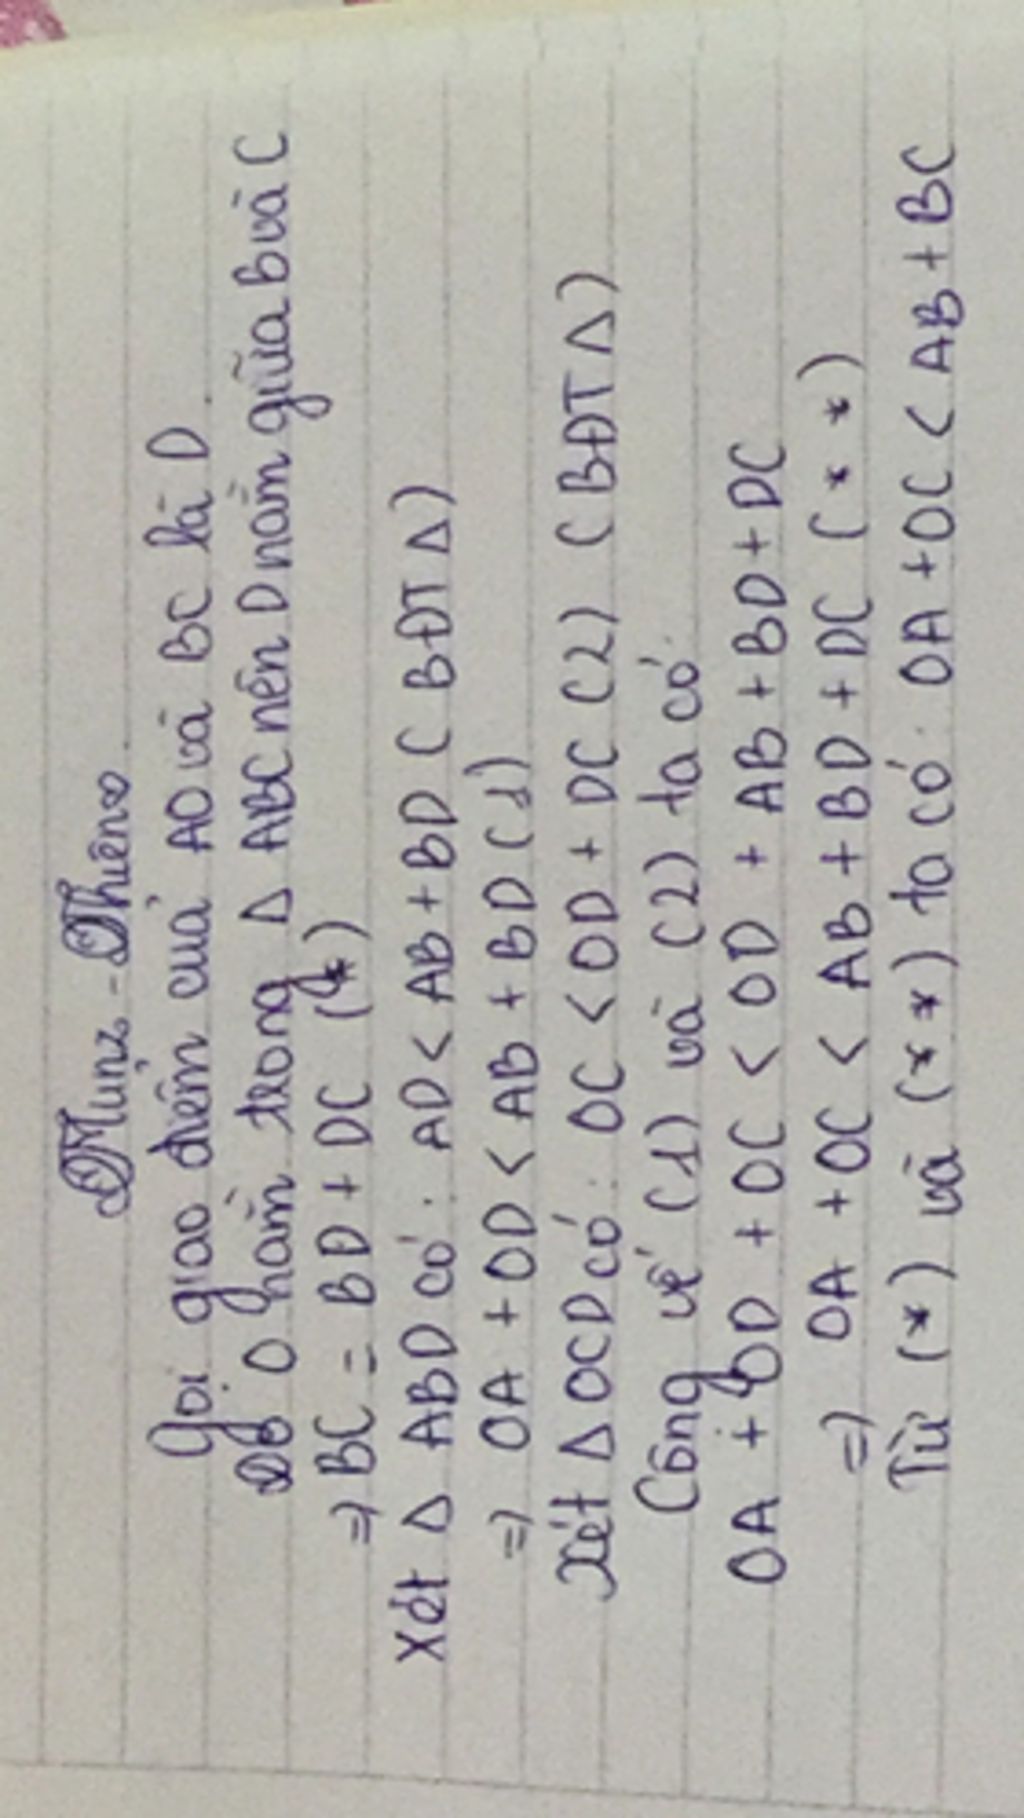 Gọi giao điểm của AO và BC là D.
Do O nằm trong Δ ABC nên D nằm giữa B và C
=> BC = BD + DC (*)
Xét Δ ABD có: AD < AB + BD ( BĐT Δ)
=> OA + OD < AB + BD (1)
Xét Δ OCD có: OC < OD + DC (2) ( BĐT Δ)
Cộng vế (1) và (2) ta có:
OA + OD + OC < OD + AB + BD + DC
=> OA + OC < AB + BD + DC (**)
Từ (*) và (**) ta có: OA + OC < AB + BC